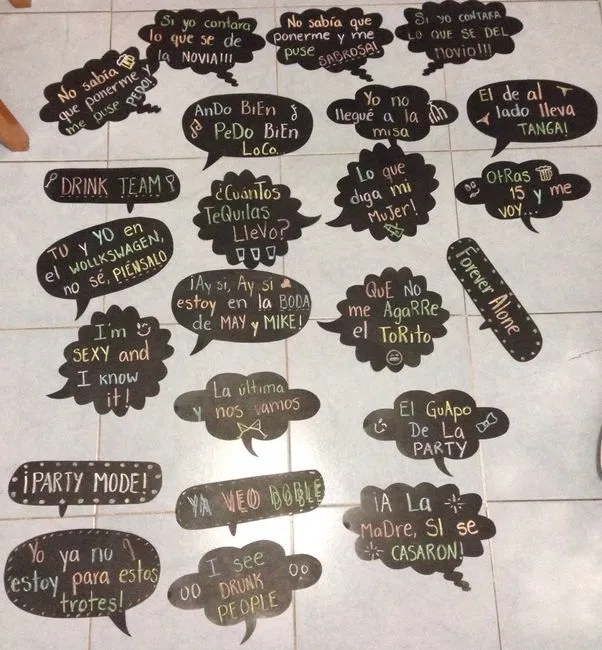 Si yo contara
lo que se de
la NOVIA!!!
No sabía que
ponerme y me
puse SABROSA!
Si yo contara
lo que se del
novio!!!
No sabía
que ponerme y
me puse PEDO!
AnDo BiEn
PeDo BiEn
LoCo.
Yo no
llegué a la
misa
El de al
lado lleva
TANGA!
DRINK TEAM
¿CuánTos
TeQuilas
LleVo?
Lo que
diga mi
Mujer!
OtRas
15 y me
voy...
TU y YO en
el WOLLKSWAGEN,
no sé, PIÉNSALO
¡Ay sí, Ay sí
estoy en la BODA
de MAY y MIKE!
QuE No
me AgaRRe
el ToRito
Forever Alone
I'm
SEXY and
I know
it!
La última
y nos vamos
El GuApo
De La
PARTY
¡PARTY MODE!
YA VEO DOBLE
¡A La
MaDre, SI se
CASARON!
Yo ya no
estoy para estos
trotes!
I see
DRUNK
PEOPLE